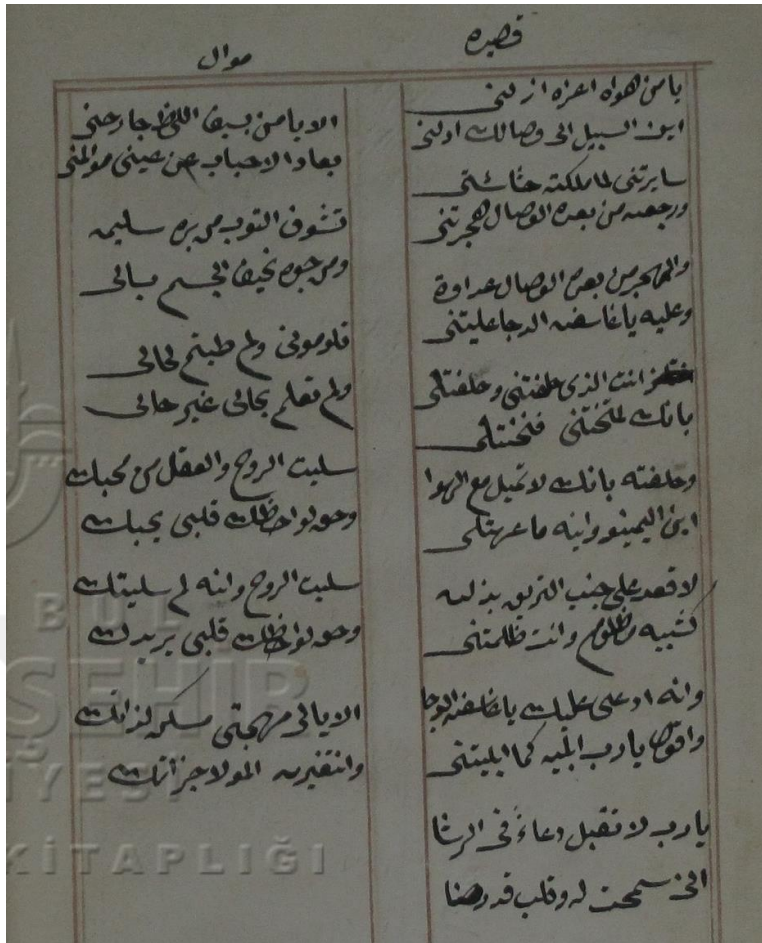 قصيده
يا من هواه اعزه ازلنى
اين السبيل الى وصالك اولنى
سايرتنى لما ملكته حشاشتى
ورجعت من بعد الوصال هجرتنى
والهجر من بعد الوصال عداوة
وعليه يا غاسق الدجا عليتنى
انت الذى حلفتنى وحلفتلى
بانك لتخنى فخنتلى
وحلفته بانك لا تميل مع الهوا
اين اليمين واينه ما عهدتلى
لاقعد على جنب الطريق بذله
كشبيه مظلوم وانت ظلمتنى
وانه ادعى عليك يا غاسق الدجا
واقول يا رب ابليه كما ابليتنى
يا رب لا تقبل دعاء فى الرشا
انى سمحت له وقلب قد رضا
موال
الا يا من بسيف اللحظ جارحنى
بعاد الاحباب عن عينى مؤلمنى
تشوف التوب من بره سليمه
ومن جوه نحيف الجسم بالى
فلومونى ولم طبتم لحالى
ولم تعلم بحالى غير حالى
سليت الروح والعقل من محبك
وحق لواحظك قلبى يحبك
سليت الروح وانه لم سليتك
وحق لواحظك قلبى يريدك
الا يالى مهجتى مسكن لذاتك
المولا جزاتك
BUL
ŞEHİR
İYESİ
KİTAPLIĞI